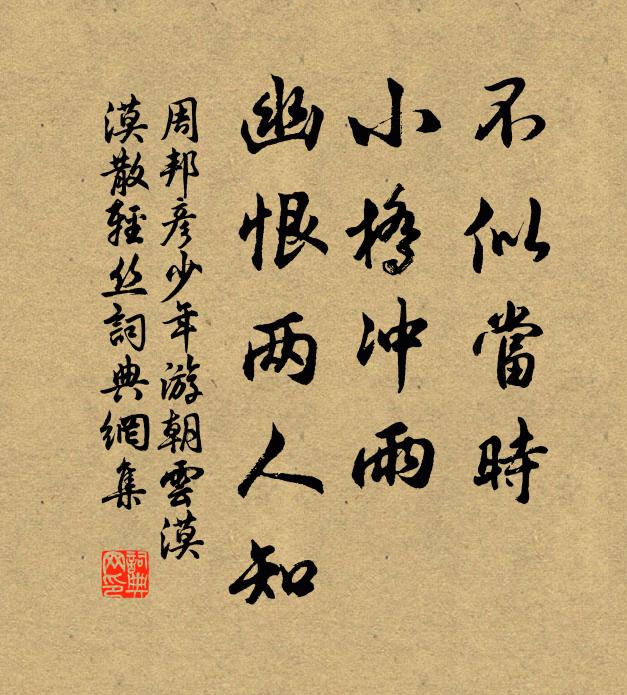 不似當時
小橋冲雨
幽恨两人知
周邦彦少年游朝雲漠
漠散輕丝詞典網集
詞典
网印